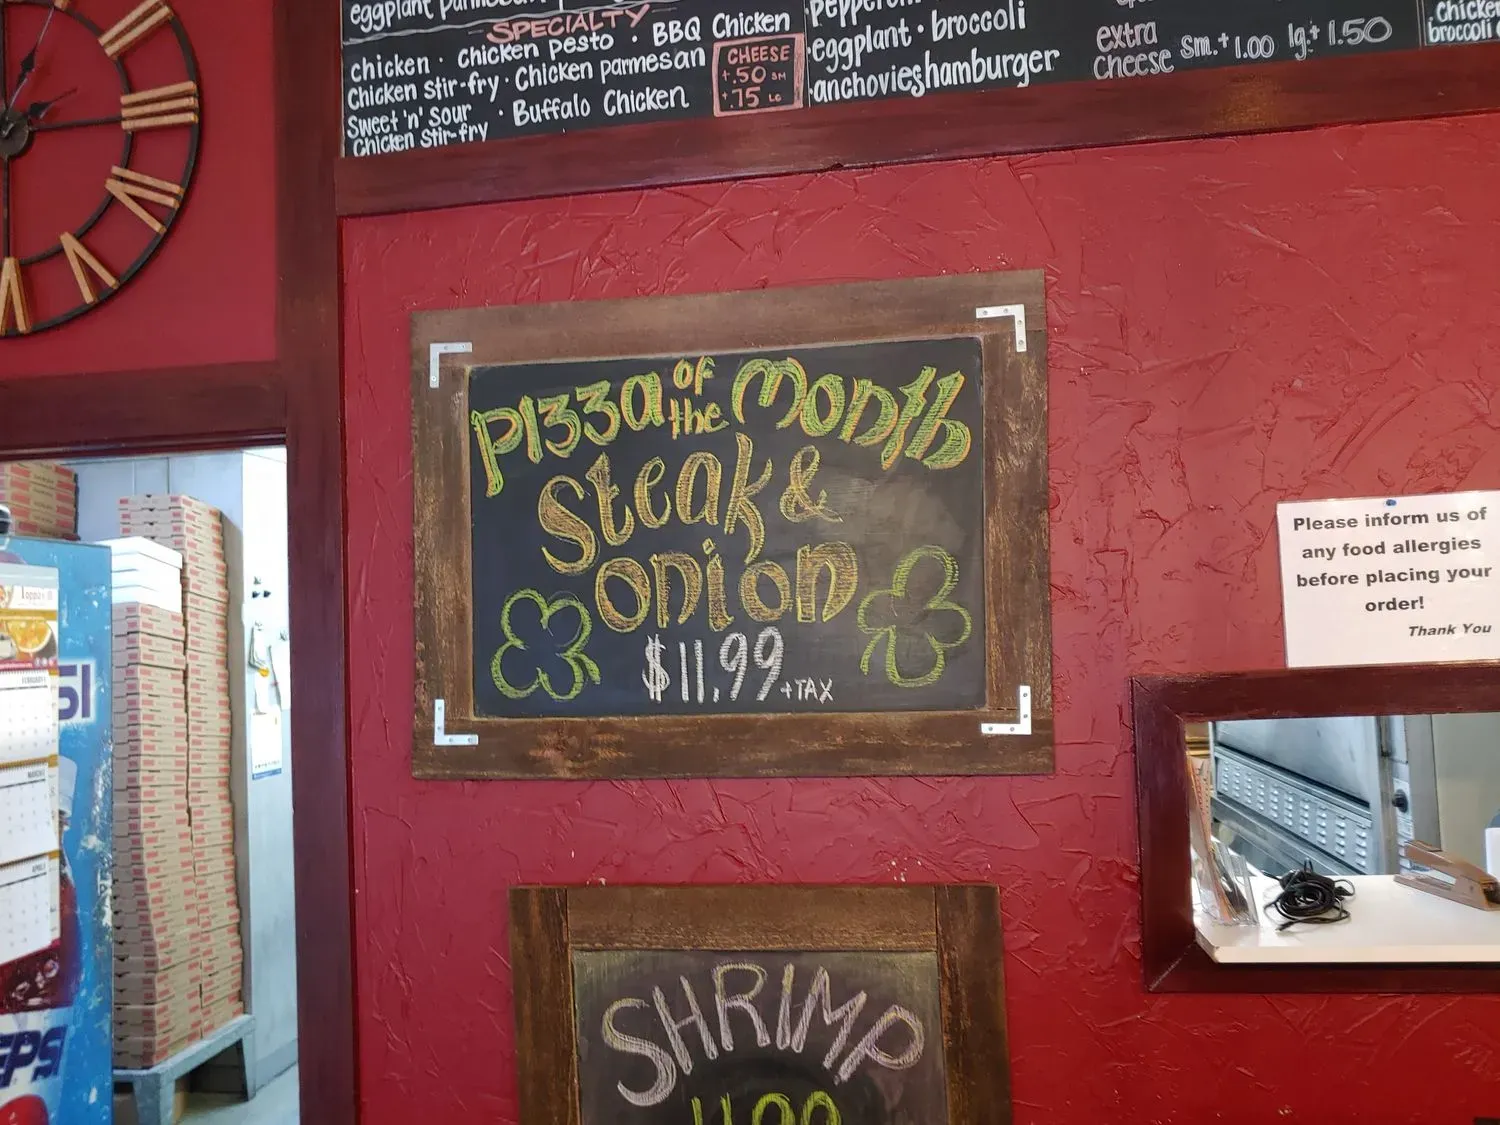 eggplant
SPECIALTY
chicken · Chicken pesto · BBQ Chicken
Chicken stir-fry · Chicken parmesan
Sweet 'n' Sour · Buffalo Chicken
Chicken stir-fry
CHEESE
+.50 SM
+.75 LG
·eggplant · broccoli
·anchovies hamburger
extra
cheese sm.+ 1.00 lg.+ 1.50
Chicken
broccoli
Pizza of the Month
Steak &
onion
$11.99 +TAX
Please inform us of
any food allergies
before placing your
order!
Thank You
SHRIMP
FEBRUARY
MARCH
APRIL